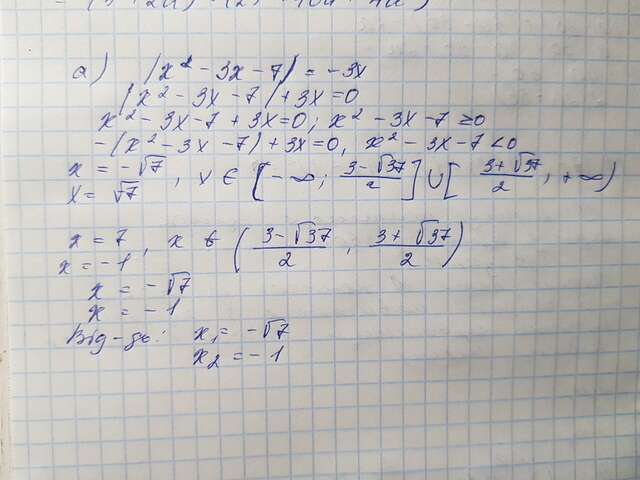 а) |x² - 3x - 7| = -3x
|x² - 3x - 7| + 3x = 0
x² - 3x - 7 + 3x = 0; x² - 3x - 7 ≥ 0
-(x² - 3x - 7) + 3x = 0, x² - 3x - 7 < 0
x = -√7
x = √7 , x ∈ [-∞; (3-√37)/2] ∪ [(3+√37)/2, +∞)
x = 7
x = -1 , x ∈ ((3-√37)/2, (3+√37)/2)
x = -√7
x = -1
Від-дь: x₁ = -√7
x₂ = -1